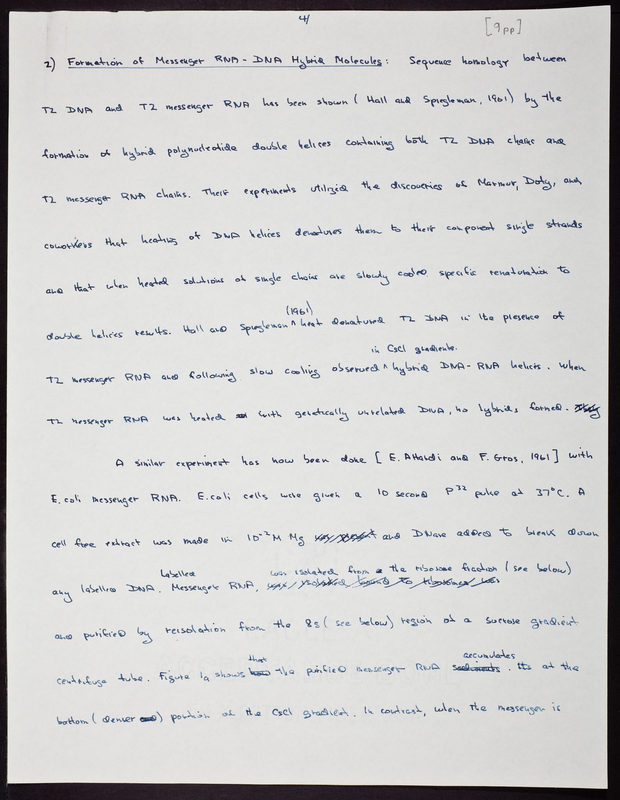 4/
[9pp]
2) Formation of Messenger RNA - DNA Hybrid Molecules: Sequence homology between
T2 DNA and T2 messenger RNA has been shown (Hall and Spiegleman, 1961) by the
formation of hybrid polynucleotide double helices containing both T2 DNA chains and
T2 messenger RNA chains. Their experiments utilized the discoveries of Marmur, Doty, and
coworkers that heating of DNA helices denatures them to their component single strands
and that when heated solutions of single chains are slowly cooled specific renaturation to
double helices results. Hall and Spiegleman ^ (1961) heat denatured T2 DNA in the presence of
T2 messenger RNA and following slow cooling observed ^ in CsCl gradients. hybrid DNA-RNA helices. When
T2 messenger RNA was heated with genetically unrelated DNA, no hybrids formed.
A similar experiment has now been done [E. Attardi and F. Gros, 1961] with
E. coli messenger RNA. E. coli cells were given a 10 second P32 pulse at 37°C. A
cell free extract was made in 10-2M Mg and DNase added to break down
any labelled DNA. Labelled Messenger RNA, was isolated from the ribosome fraction (see below)
and purified by reisolation from the 8s (see below) region of a sucrose gradient
centrifuge tube. Figure 1a shows that the purified messenger RNA accumulates. at the
bottom (denser) portion of the CsCl gradient. In contrast, when the messenger is